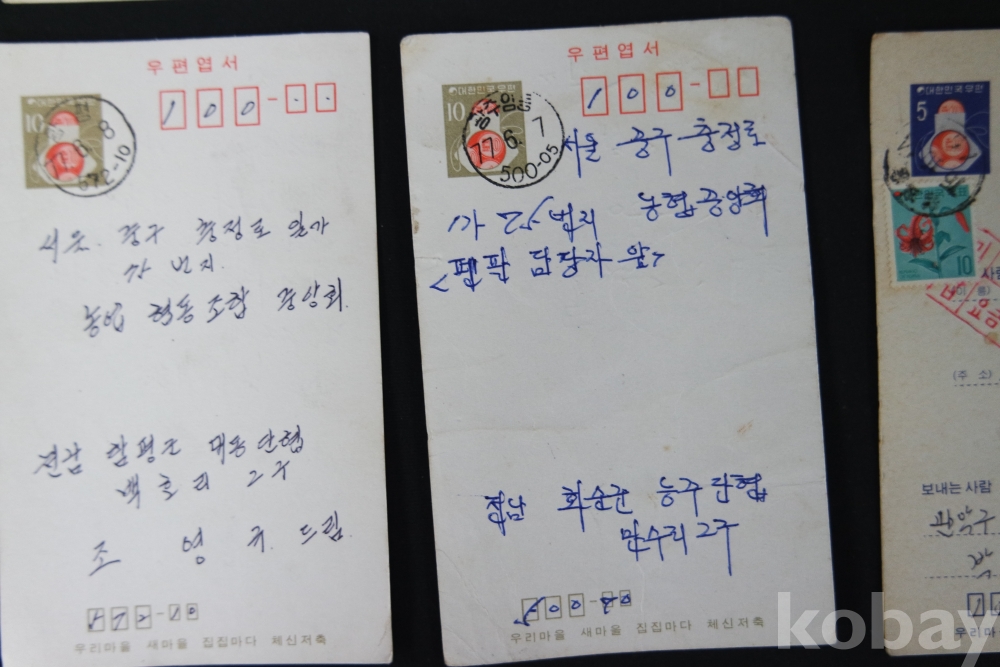 우편엽서
대한민국우편
10
77.6.8
572-10
100-
서울. 중구 충정로 일가
번지
농업 협동조합 중앙회.
전남 함평군 대동단협
백호리 2구
조 영 규. 드림.
572-10
우리마을 새마을 집집마다 체신저축
우편엽서
대한민국우편
10
77.6.7
500-05
100-
서울 중구 충정로
1가 75번지 농협중앙회
<편판 담당자 앞>
전남 화순군 능주단협
만수리 2구
우리마을 새마을 집집마다 체신저축
대한민국우편
5
10
(주소)
보내는 사람
관악구
우리마
kobay